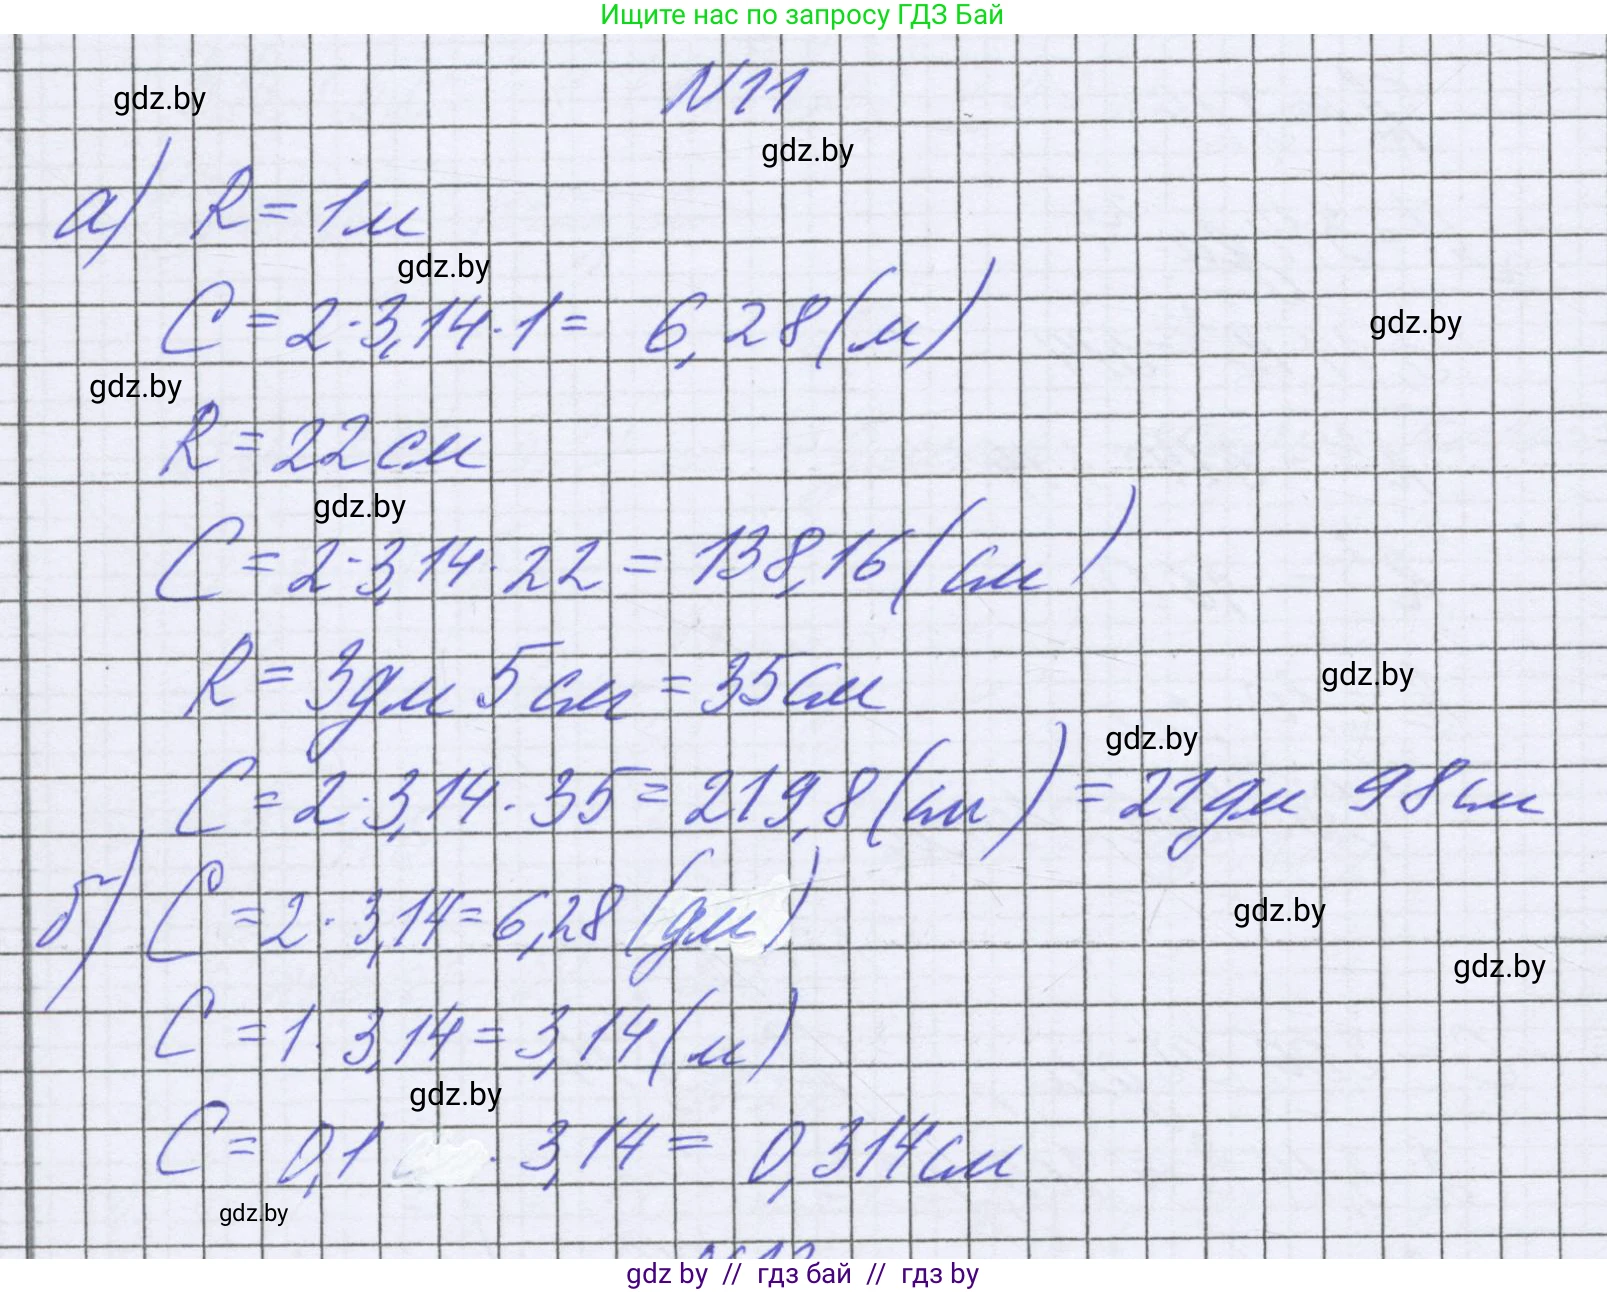 Ищите нас по запросу ГДЗ Бай
N11
gdz.by
gdz.by
а) R = 1м
gdz.by
C = 2·3,14·1 = 6,28(м)
gdz.by
gdz.by
R = 22см
gdz.by
C = 2·3,14·22 = 138,16(см)
R = 3дм 5см = 35см
gdz.by
gdz.by
C = 2·3,14·35 = 219,8(см) = 21дм 98см
б) C = 2·3,14 = 6,28(дм)
gdz.by
gdz.by
C = 1·3,14 = 3,14(м)
gdz.by
C = 0,1 · 3,14 = 0,314см
gdz.by
gdz by // гдз бай // гдз by